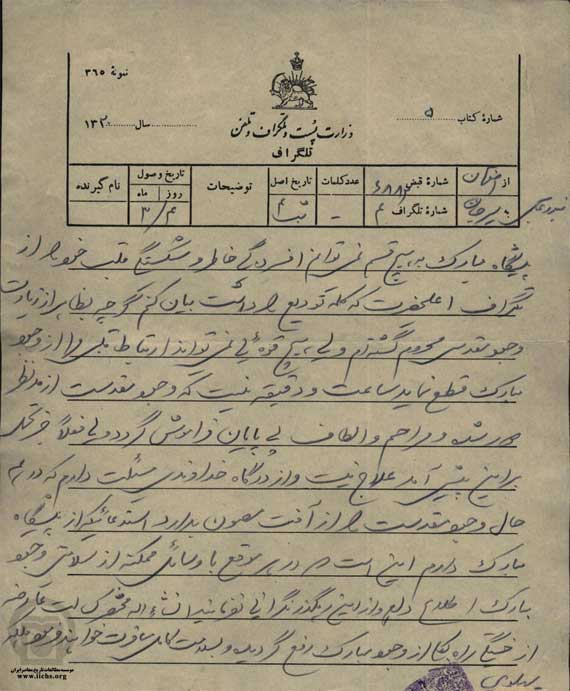 نمونهٔ ۳۶۵
شمارهٔ کتاب ۵
سال ۱۳۲
وزارت پست و تلگراف و تلفن
تلگراف
از
به سیرجان
شمارهٔ قبض
شمارهٔ تلگراف ۴
عدد کلمات
تاریخ اصل
توضیحات
تاریخ وصول
روز ماه
۳/۴
نام گیرنده
پیشگاه مبارک به هیچ قسم نمی توانم افسردگی خاطر و شکستگی قلب خود را از
تلگراف اعلیحضرت که کله تودیع را داشت بیان کنم گو چه بظاهر از زیارت
وجود مقدس محروم گشته ام ولی هیچ قوهٔ ئی نمی تواند ارتباط قلبی مرا از وجود
مبارک قطع نماید ساعت و دقیقه نیست که وجود مقدست از مد نظر
دور شده و مراحم و الطاف بی پایان فراموش گردد ولی فعلاً جز تحمل
بر این پیش آمد علاج نیست و از درگاه خداوندی مسئلت دارم که در همه
حال وجود مقدست را از آفت مصون بدارد استدعائیکه از پیشگاه
مبارک دارم این است در هر موقع با وسائل ممکنه از سلامتی وجود
مبارک اطلاع داده و از این رهگذر نگرانی نفرمایند انشاءاله
از خستگی راه بکلی از وجود مبارک رفع گردیده و بسلامت مسافرت خواهند فرمود
پهلوی
موسسه مطالعات تاریخ معاصر ایران
www.iichs.org